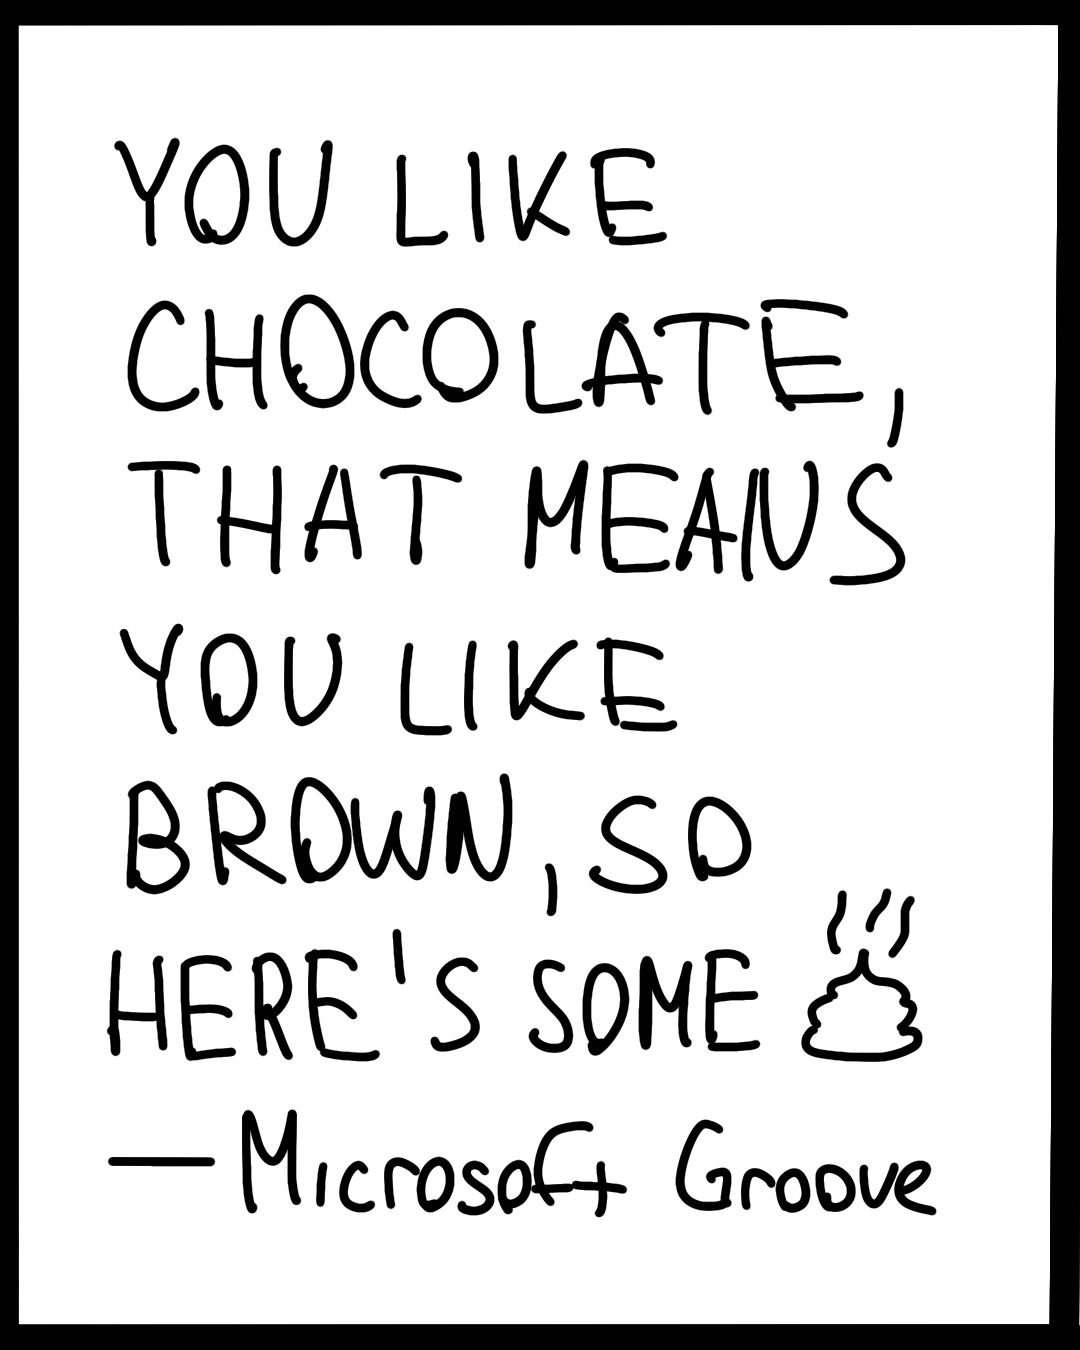 YOU LIKE
CHOCOLATE,
THAT MEANS
YOU LIKE
BROWN, SO
HERE'S SOME
— Microsoft Groove